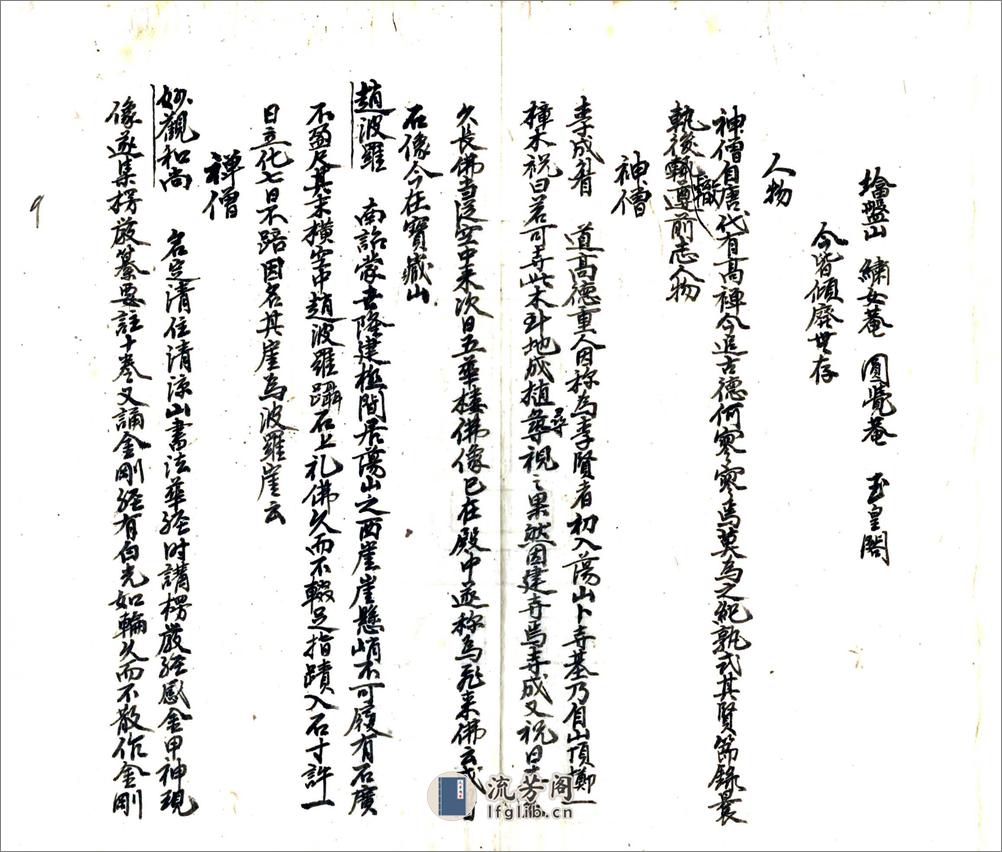 墖盤山 繡女菴 圓覺菴 玉皇閣
今皆傾廢無存
人物
神僧自唐代有高禪今追古德何寥寥焉莫為之紀孰式其賢節錄曩
執後轍遵前志人物
轍
神僧
李成眉 道高德重人因称為李賢者初入蕩山卜寺基乃自山頂擲一
樟木祝曰若可寺此木到地成植尋視之果然因建寺焉寺成又祝曰
尋
久長佛当從空中来次日五華楼佛像已在殿中遂称為飛来佛云或
石像今在寶藏山
趙波羅 南詔蒙世隆建極間居蕩山之西崖崖懸峭不可履有石廣
不盈尺其末横空中趙波羅躡石上礼佛久而不輟足指蹟入石寸許一
日立化七日不踣因名其崖為波羅崖云
禅僧
妙觀和尚 名定清住清涼山書法華經时講楞嚴經感金甲神現
像遂集楞嚴纂要註十巻又誦金剛經有白光如輪久而不散作金剛
9
流芳阁
lfglib.cn